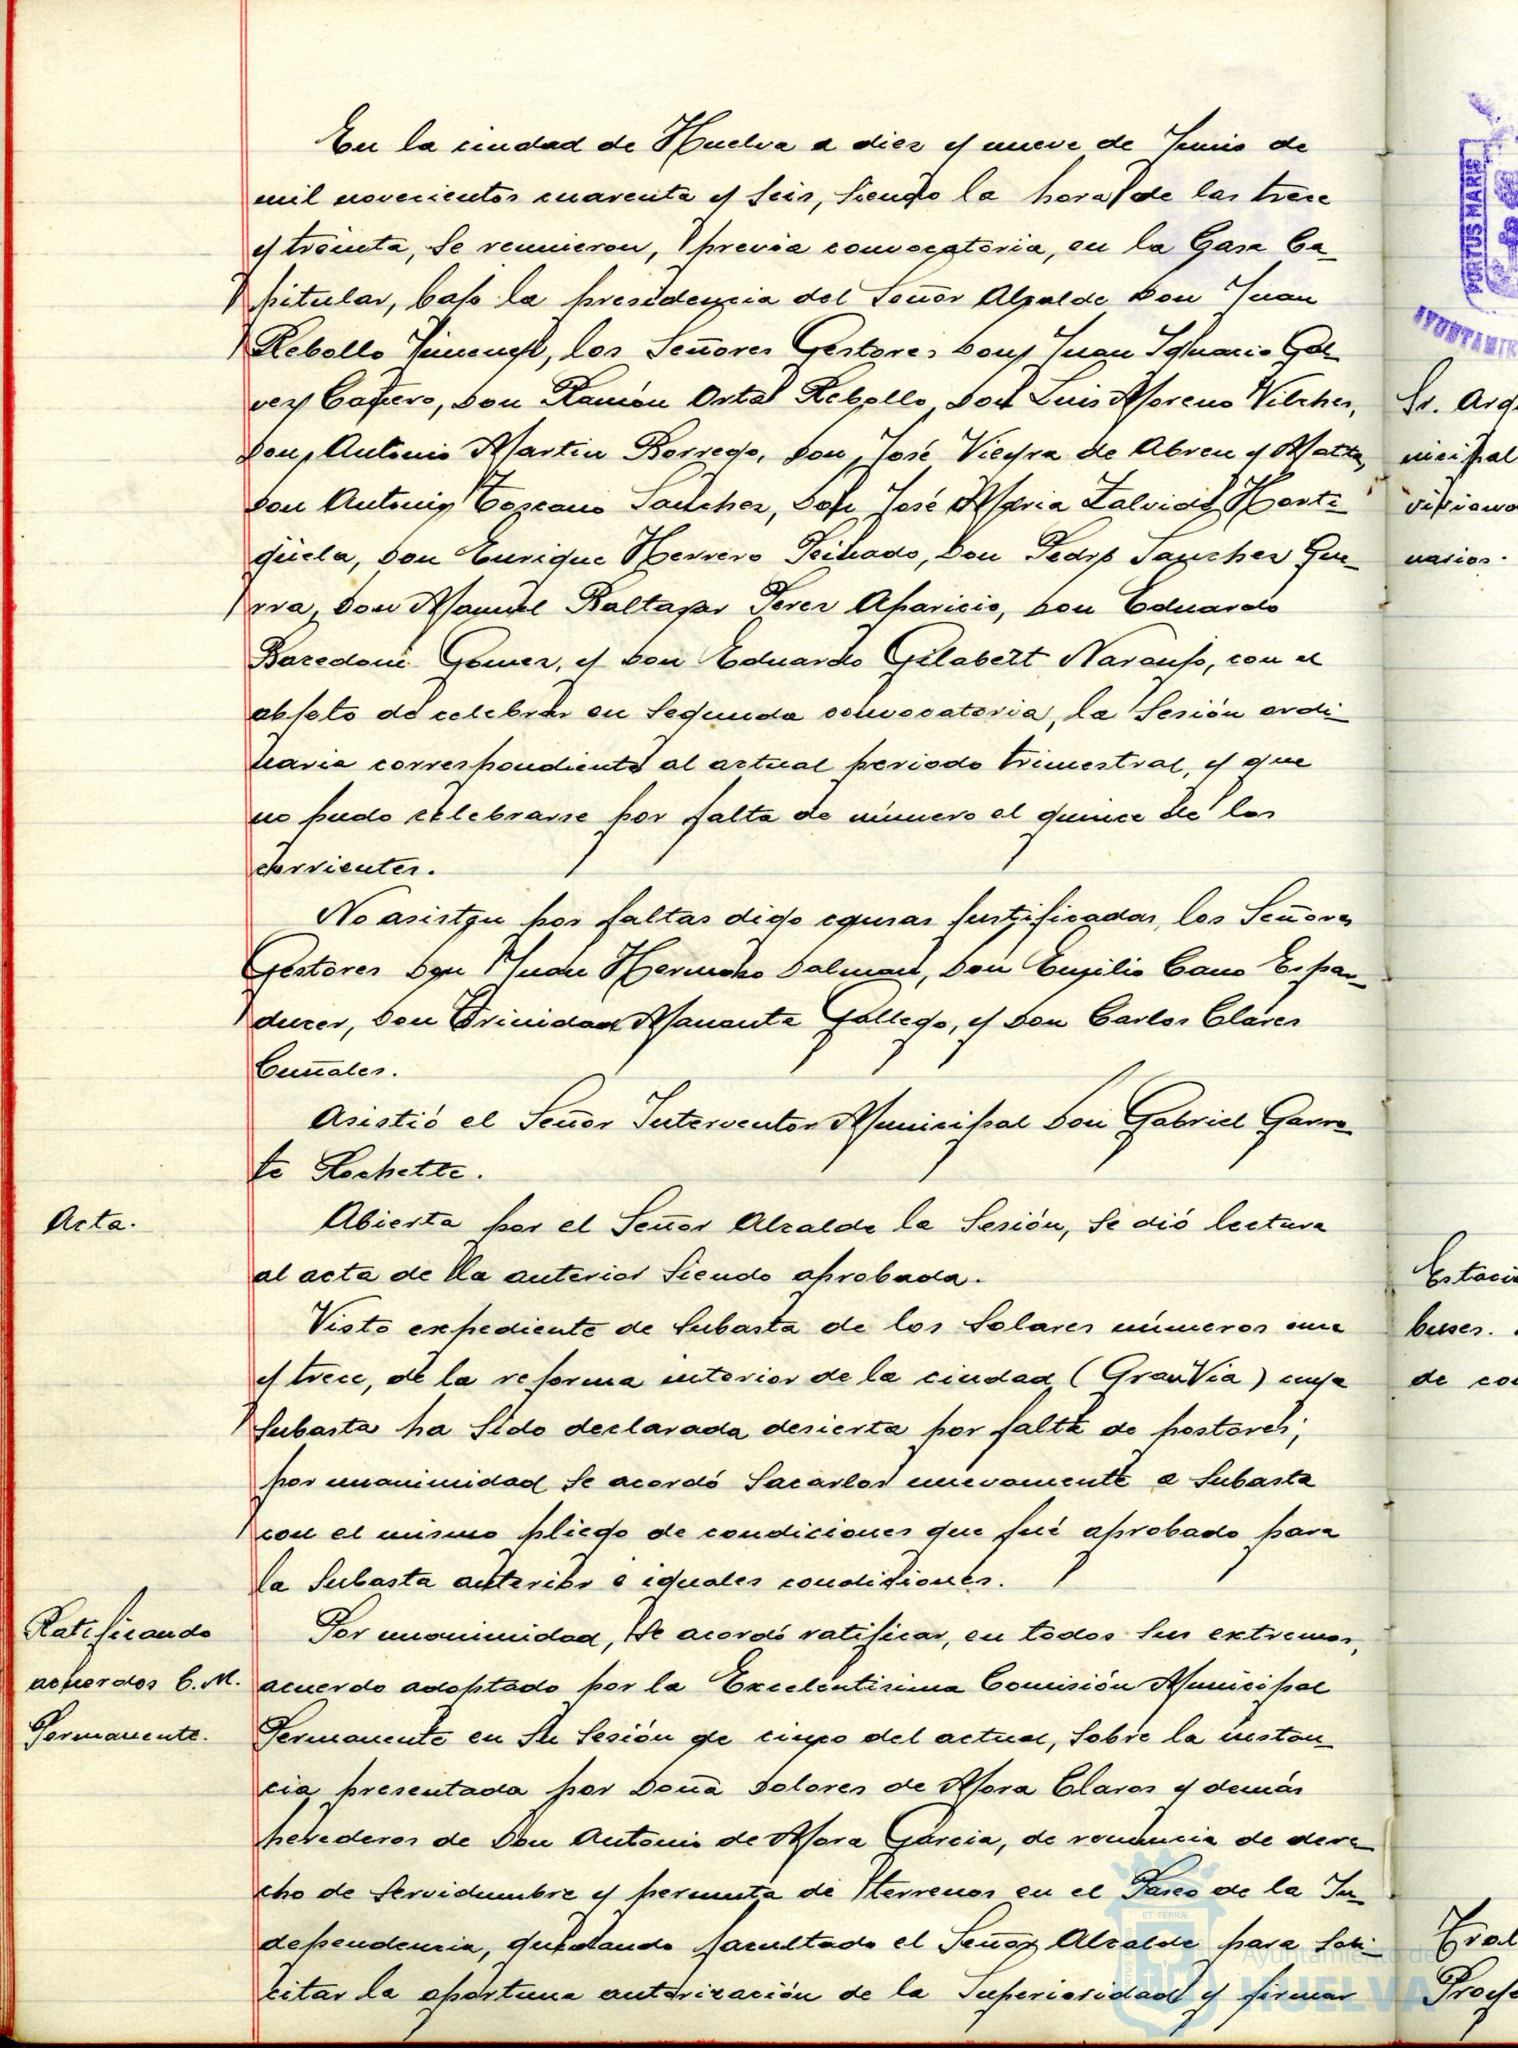 En la ciudad de Huelva a diez y nueve de Junio de
mil novecientos cuarenta y seis, siendo la hora de las trece
y treinta, se reunieron, previa convocatoria, en la Casa Ca-
pitular, bajo la presidencia del Señor Alcalde Don Juan
Rebollo Jimenez, los Señores Gestores Don Juan Ignacio Gal-
vez Cañero, Don Ramón Ortal Rebollo, Don Luis Moreno Vilches,
Don Antonio Martin Borrego, Don José Vieyra de Abreu y Matta,
Don Antonio Toscano Sanchez, Don José Maria Zalvide Horti-
güela, Don Enrique Herrero Peinado, Don Pedro Sanchez Gue-
rra, Don Manuel Baltasar Perez Aparicio, Don Eduardo
Bacedoni Gomez, y Don Eduardo Gilabert Naranjo, con el
objeto de celebrar en segunda convocatoria, la Sesión ordi-
naria correspondiente al actual periodo trimestral, y que
no pudo celebrarse por falta de número el quince de los
corrientes.
No asisten por faltas digo causas justificadas, los Señores
Gestores Don Juan Hermoso Dalman, Don Emilio Cano Espan-
ducer, Don Trinidad Mananta Gallego, y Don Carlos Clares
Cumales.
Asistió el Señor Interventor Municipal Don Gabriel Garra-
te Rochette.
Acta.
Abierta por el Señor Alcalde la Sesión, se dió lectura
al acta de la anterior siendo aprobada.
Visto expediente de subasta de los solares números once
y trece, de la reforma interior de la ciudad (Gran Via) cuya
subasta ha sido declarada desierta por falta de postores;
por unanimidad se acordó sacarlos nuevamente a subasta
con el mismo pliego de condiciones que fué aprobado para
la subasta anterior e iguales condiciones.
Ratificando
acuerdos C. M.
Permanente.
Por unanimidad, se acordó ratificar, en todos sus extremos,
acuerdo adoptado por la Excelentisima Comisión Municipal
Permanente en su sesión de cinco del actual, sobre la instan-
cia presentada por Doña Dolores de Mora Claros y demás
herederos de Don Antonio de Mora Garcia, de renuncia de dere-
cho de servidumbre y permuta de terrenos en el Paseo de la In-
dependencia, quedando facultado el Señor Alcalde para soli-
citar la oportuna autorización de la Superioridad y firmar
PORTUS MARIS
Sr. Arq
nicipal
narios.
buses.
ET TERRÆ
Ayuntamiento de
HUELVA